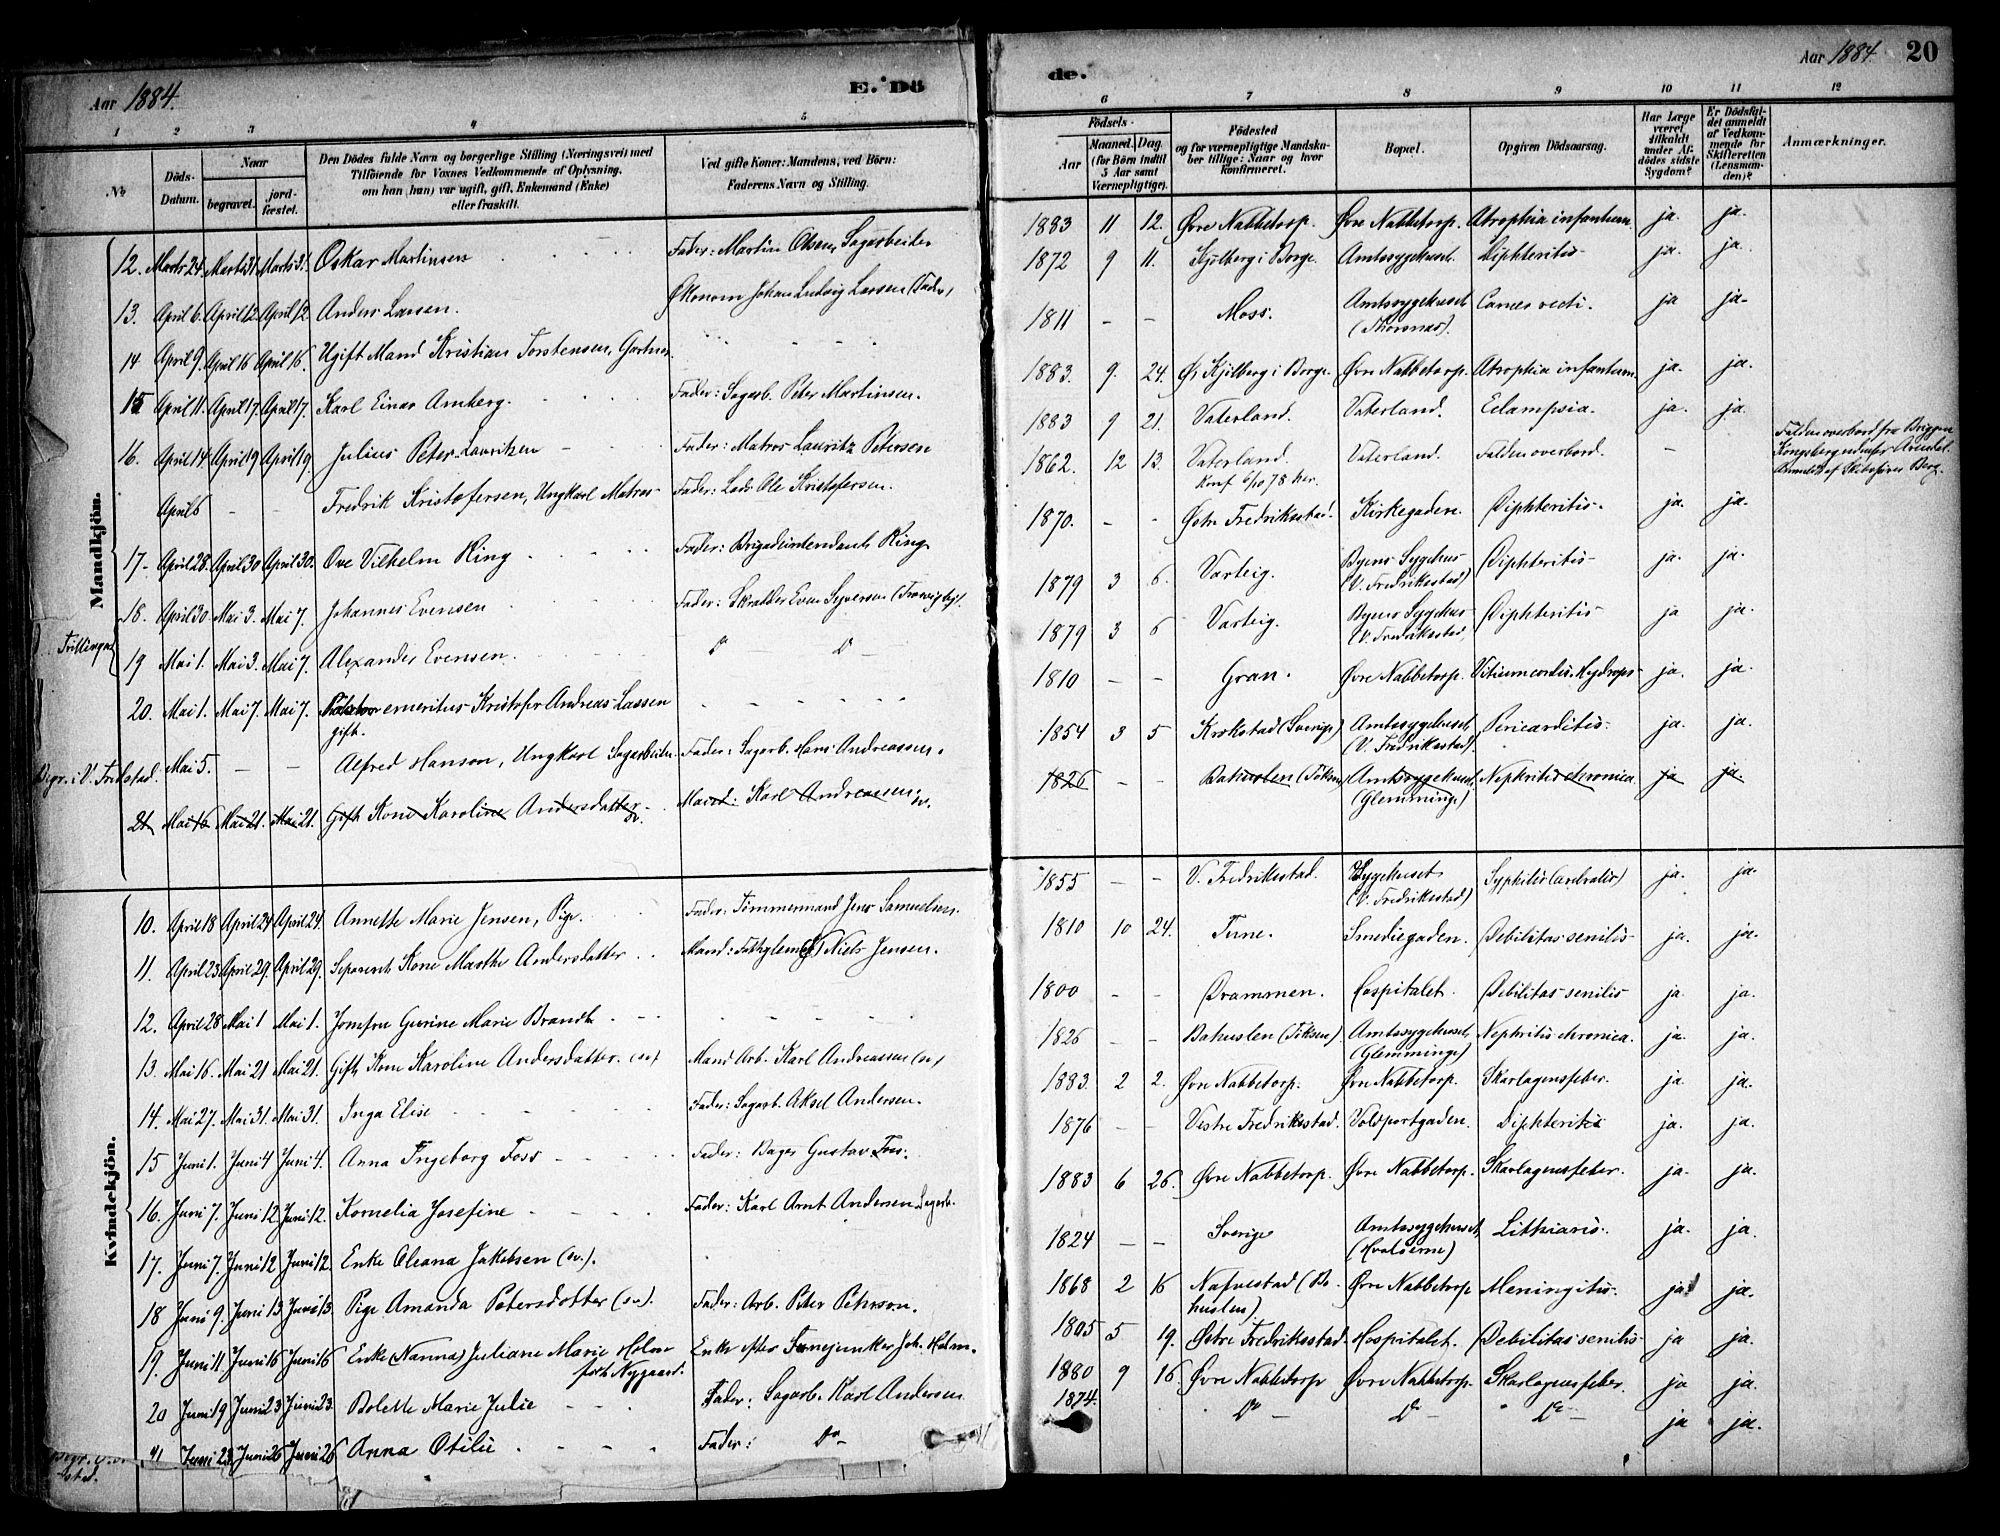 Aar 1884.
E. Dö
de.
Aar 1884.
20
1 2 3 4 5
6 7 8 9 10 11 12
No
Döds-Datum.
Naar
begravet.
jord-fæstet.
Den Dödes fulde Navn og borgerlige Stilling (Næringsvei) med
Tilföiende for Voxnes Vedkommende af Oplysning,
om han (hun) var ugift, gift, Enkemand (Enke)
eller fraskilt.
Ved gifte Koner: Mandens, ved Börn:
Faderens Navn og Stilling.
Födsels-
Aar
Maaned. Dag.
(for Börn indtil
5 Aar samt
Værnepligtige).
Födested
og for værnepligtige Mandska-
ber tillige: Naar og hvor
konfirmeret.
Bopæl.
Opgiven Dödsaarsag.
Har Læge
været
tilkaldt
under Af-
dödes sidste
Sygdom?
Er Dödsfal-
det anmeldt
af Vedkom-
mende for
Skifteretten
(Lensman-
den)?
Anmærkninger.
Mandkjön.
12. Marts 24. Marts 31. Marts 31. Oskar Martinsen Fader: Martin Olsen, Sagarbeider 1883 11 12. Øvre Nabbetorp. Øvre Nabbetorp. Atrophia infantum. ja. ja.
13. April 6. April 12. April 12. Anders Larsen. Økonom Johan Ludvig Larsen (Fader) 1872 9 11. Kjölberg i Borge. Amtssygehuset. Diphteritis ja. ja
14 April 9. April 16 April 16. Ugift Mand Kristian Torstensen, Gartner. 1811 - - Moss. Amtssygehuset (Thorsnæs). Cancer recti. ja ja-
15 April 11. April 17. April 17. Karl Einar Amberg. Fader: Sagarb. Peter Martinsen. 1883. 9. 24. Ø. Kjölberg i Borge. Øvre Nabbetorp. Atrophia infantum. ja. ja.
16. April 14 April 19 April 19. Julius Peter Lauritzen Fader: Matros Lauritz Petersen 1883 9 21. Vaterland. Vaterland. Eclampsia. ja. ja.
April 6 - - Fredrik Kristofersen, Ungkarl Matros Fader: Lods Ole Kristofersen. 1862. 12 13. Vaterland. Konf 6/10 78 her. Vaterland. Falden overbord. - Falden overbord fra Briggen
Kongsberg udenfor Arendal.
Anmeldt af Skibsfører Berg.
17- April 28. April 30 April 30. Ove Vilhelm Ring Fader: Brigadeintendant Ring 1870. - - Østre Fredriksstad. Kirkegaden. Diphteritis. ja. ja.
18. April 30. Mai 3. Mai 7. Johannes Evensen Fader: Skrædder Even Syversen 1879 3 6. Varteig. Byens Sygehus (V. Fredriksstad) Diphteritis ja. ja.
Trillinger
19 Mai 1. Mai 3. Mai 7. Alexander Evensen. Do Do 1879 3 6 Varteig. Byens Sygehus (V. Fredriksstad. Diphteritis ja ja.
20. Mai 1. Mai 7. Mai 7. Pastor emeritus Kristofer Andreas Lassen gift. 1810 - - Gran. Øvre Nabbetorp. Vitium cordis. Hydrops. ja. ja.
Begr. i V. Fredstad. Mai 5. - - Alfred Hanson, Ungkarl Sagarbeider. Fader: Sagarb. Hans Andreassen. 1854 3 5 Krokstad (Sverige) Amtssygehuset (V. Fredriksstad). Pericarditis. ja. ja.
21 Mai 16 Mai 21. Mai 21. Gift Kone Karoline Andersdatter sv. Mand: Karl Andreassen. sv. 1826 - - Bahuslen Amtssygehuset (Glemminge) Nephritis chronica ja ja.
Kvindekjön.
10. April 18 April 24 April 24. Annette Marie Jensen, Pige. Fader: Tømmermand Jens Samuelsen. 1855 - - V. Fredriksstad. Sygehuset (V. Fredriksstad) Syphilis (cerebralis) ja. ja.
11. April 23. April 29. April 29. Separeret Kone Marthe Andersdatter Mand: Niels Jensen. 1810 10 24. Tune. Smediegaden. Debilitas senilis ja. ja.
12. April 28 Mai 1 Mai 1. Jomfru Gurine Marie Brandt 1800 - - Drammen. Hospitalet. Debilitas senilis ja. ja.
13. Mai 16. Mai 21 Mai 21. Gift Kone Karoline Andersdatter. (sv) Mand Arb. Karl Andreassen (sv) 1826 - - Bahuslen Amtssygehuset (Glemminge) Nephritis chronica. ja. ja.
14. Mai 27. Mai 31. Mai 31. Inga Elise Fader: Sagarb. Aksel Andersen. 1883. 2 2. Øvre Nabbetorp. Øvre Nabbetorp. Skarlagensfeber. ja ja.
15 Juni 1. Juni 4 Juni 4. Anna Ingeborg Foss Fader: Bager Gustav Foss. 1876 - - Vestre Fredriksstad. Voldportgaden. Diphteritis ja. ja.
16. Juni 7. Juni 12 Juni 12. Kornelia Josefine Fader: Karl Arnt Andersen Sagarb. 1883 6 26. Øvre Nabbetorp. Øvre Nabbetorp. Skarlagensfeber. ja. ja.
17. Juni 7. Juni 12 Juni 12. Enke Oleana Jakobsen (sv.). 1824 - - Sverige Amtssygehuset, (Hvalöerne) Lithiasis. ja. ja
18 Juni 9. Juni 13 Juni 13. Pige Amanda Petersdotter (sv). Fader: Arb. Peter Peterson. 1868 2 16 Nafverstad (Bohuslen) Øvre Nabbetorp Meningitis. ja ja.
19. Juni 11. Juni 16 Juni 16 Enke (Nanna) Juliane Marie Holm født Nygaard. Enke efter Joh. Holm. 1805 5 19. Østre Fredriksstad. Hospitalet. Debilitas senilis ja ja.
20 Juni 19 Juni 23 Juni 23. Bolette Marie Julie Fader: Sagarb. Karl Andersen 1880 9 16. Øvre Nabbetorp Øvre Nabbetorp. Skarlagensfeber. ja ja.
21 Juni 23. Juni 26 Juni 26 Anna Otilie Fader: Do 1874. Do Do Do ja ja.